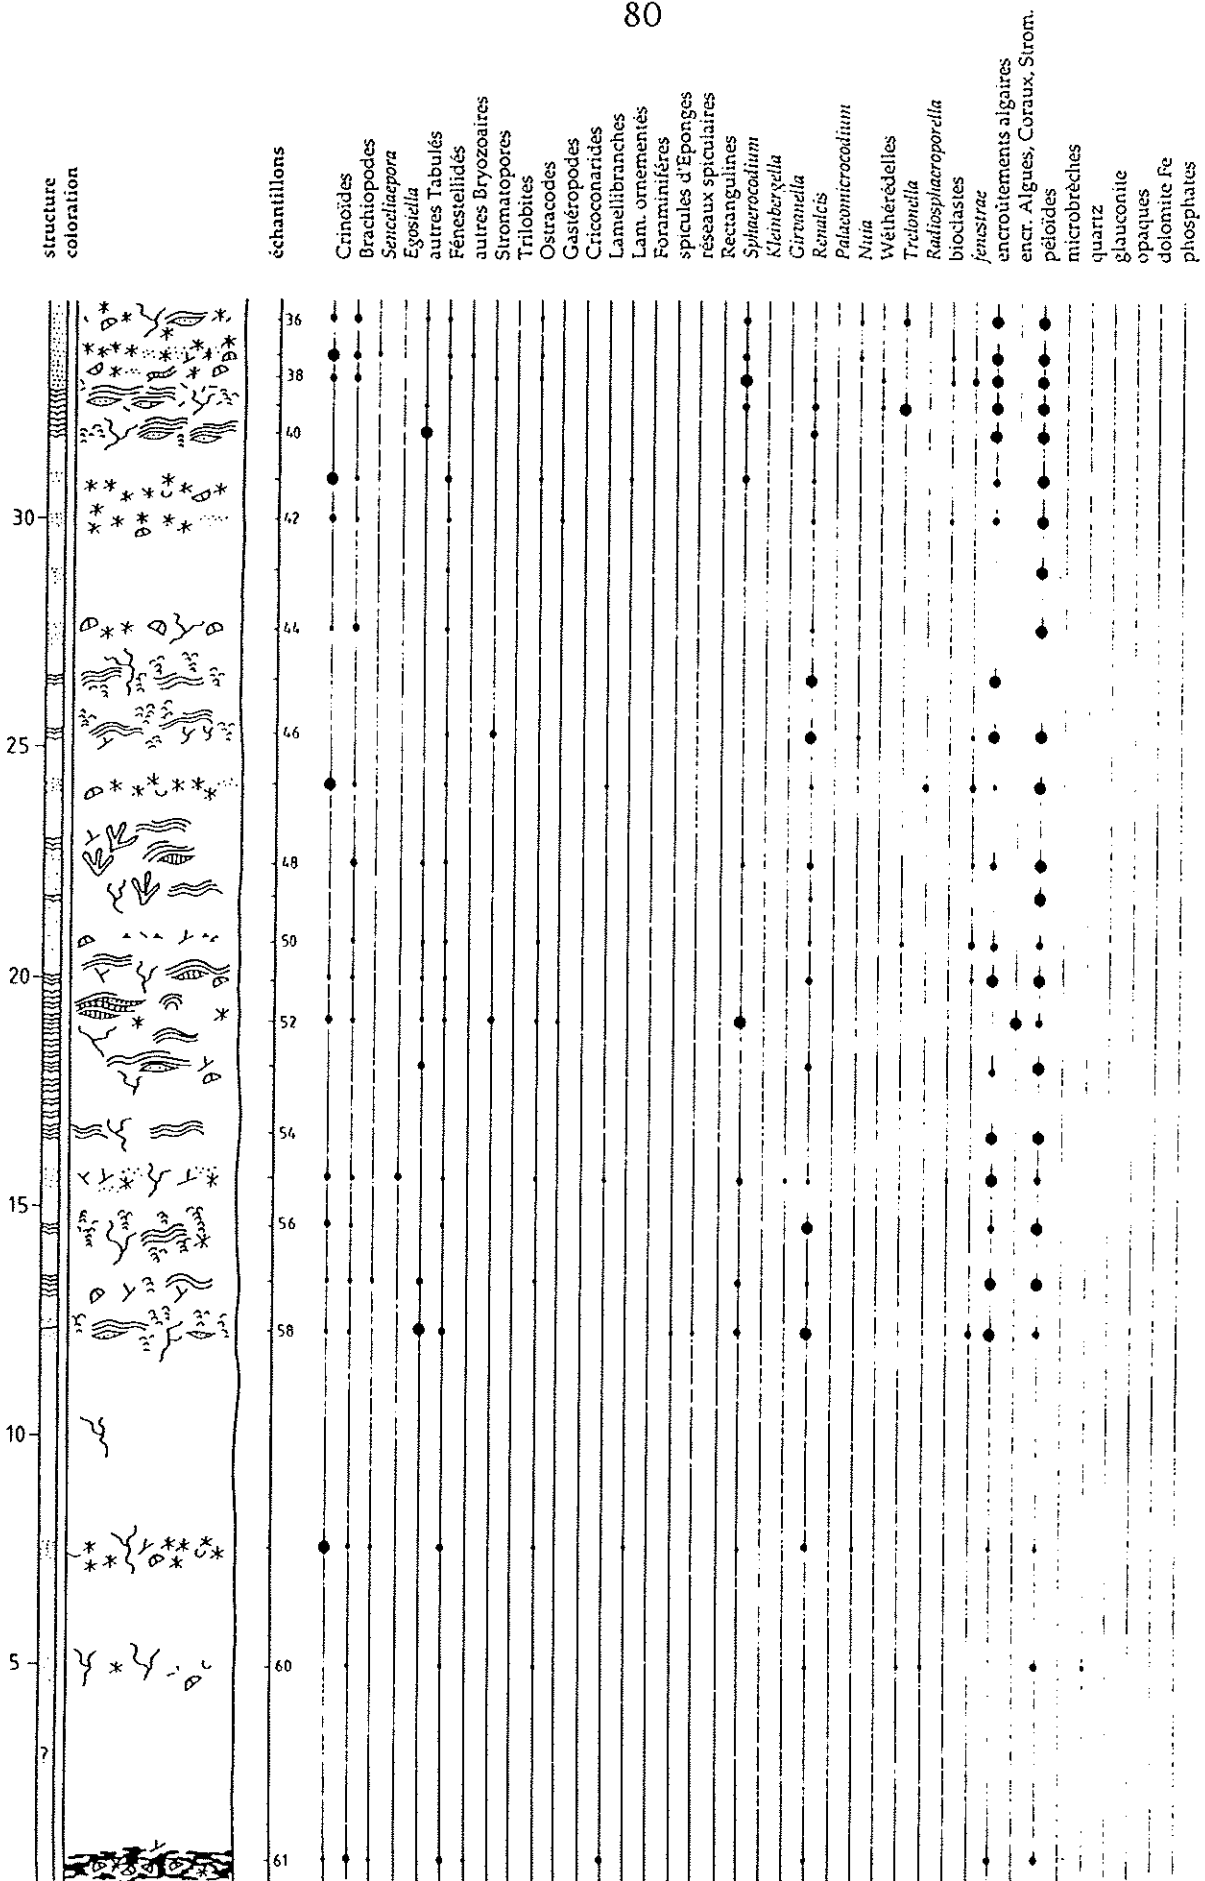 80
structure
coloration
échantillons
Crinoïdes
Brachiopodes
Senceliaepora
Egosiella
autres Tabulés
Fénestellidés
autres Bryozoaires
Stromatopores
Trilobites
Ostracodes
Gastéropodes
Cricoconarides
Lamellibranches
Lam. ornementés
Foraminifères
spicules d'Eponges
réseaux spiculaires
Rectangulines
Sphaerocodium
Kleinbergella
Girvanella
Renalcis
Palaeomicrocodium
Nuia
Wéthérédelles
Trelonella
Radiosphaeroporella
bioclastes
fenestrae
encroûtements algaires
encr. Algues, Coraux, Strom.
péloïdes
microbrèches
quartz
glauconite
opaques
dolomite Fe
phosphates
36
38
40
30
42
44
46
25
48
50
20
52
54
15
56
58
10
5
60
?
61